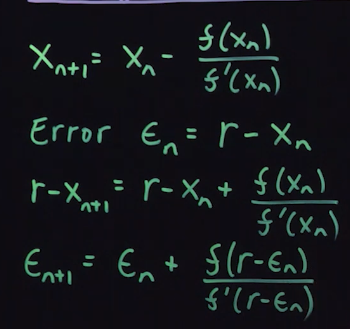 Xₙ₊₁ = Xₙ - f(xₙ)/f'(xₙ)
Error ϵₙ = r - xₙ
r-Xₙ₊₁ = r-Xₙ + f(xₙ)/f'(xₙ)
ϵₙ₊₁ = ϵₙ + f(r-ϵₙ)/f'(r-ϵₙ)